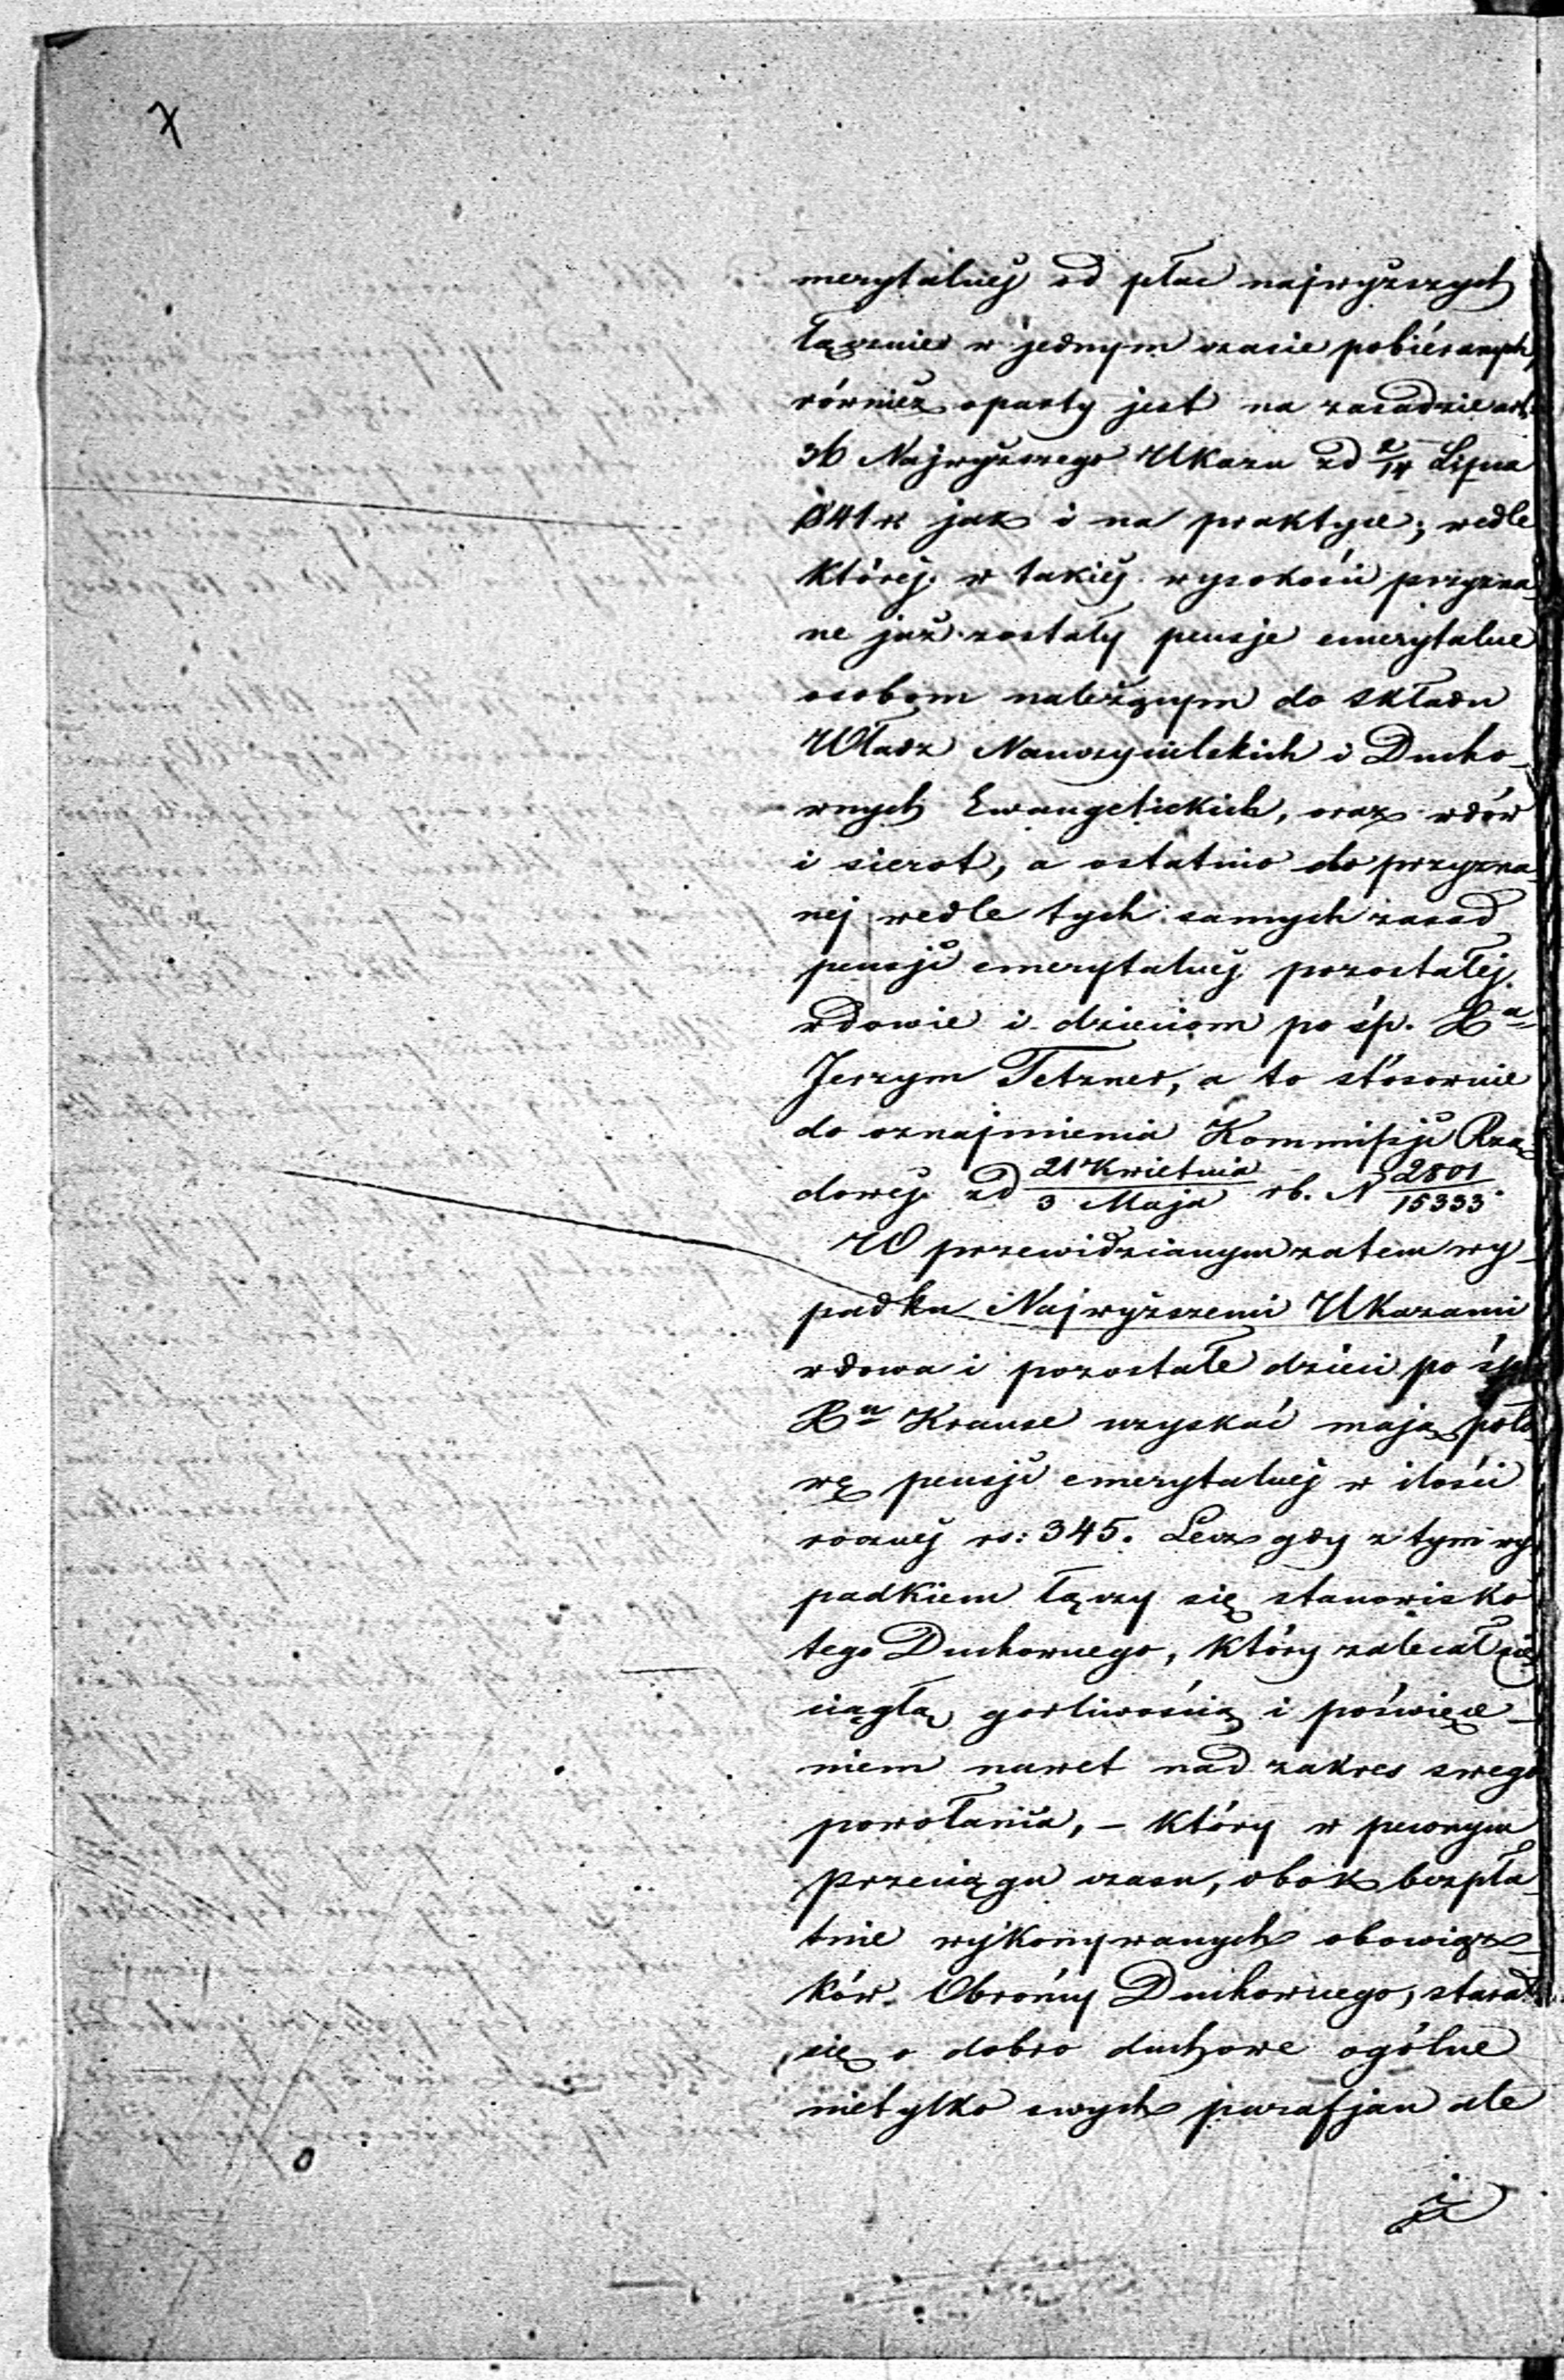 7
merytalnéj od płac najwyższych
łącznie w jednym czasie pobiéranych,
również oparty jest na zasadzie art.
36 Najwyższego Ukazu z d 2/14 Lipca
1841 r jak i na praktyce; wedle
któréj w takiéj wysokości przyzna-
ne już zostały pensje emerytalne
osobom należącym do składu
Władz Nauczycielskich i Ducho-
wnych Ewangelickich, oraz wdów
i sierot, a ostatnio do przyzna-
nej wedle tych samych zasad
pensji emerytalnéj pozostałéj
wdowie i dzieciom po śp. Xu
Jerzym Tetzner, a to stósownie
do oznajmienia Kommissji Rzą-
dowéj z d 21 Kwietnia/3 Maja rb. N 2801/15333.
W przewidzianym zatem wy-
padku Najwyższemi Ukazami
wdowa i pozostałe dzieci po śp.
Xu Krause uzyskać mają poło-
wę pensji emerytalnéj w ilości
rocznéj rs: 345. Lecz gdy z tym wy-
padkiem łączy się stanowisko
tego Duchownego, który zalecał się
ciągłą gorliwością i poświęce-
niem nawet nad zakres swego
powołania, – który w pewnym
przeciągu czasu, obok bezpła-
tnie wykonywanych obowiąz-
ków Obrońcy Duchownego, starał
się o dobro duchowe ogólne
nietylko swych parafjan ale